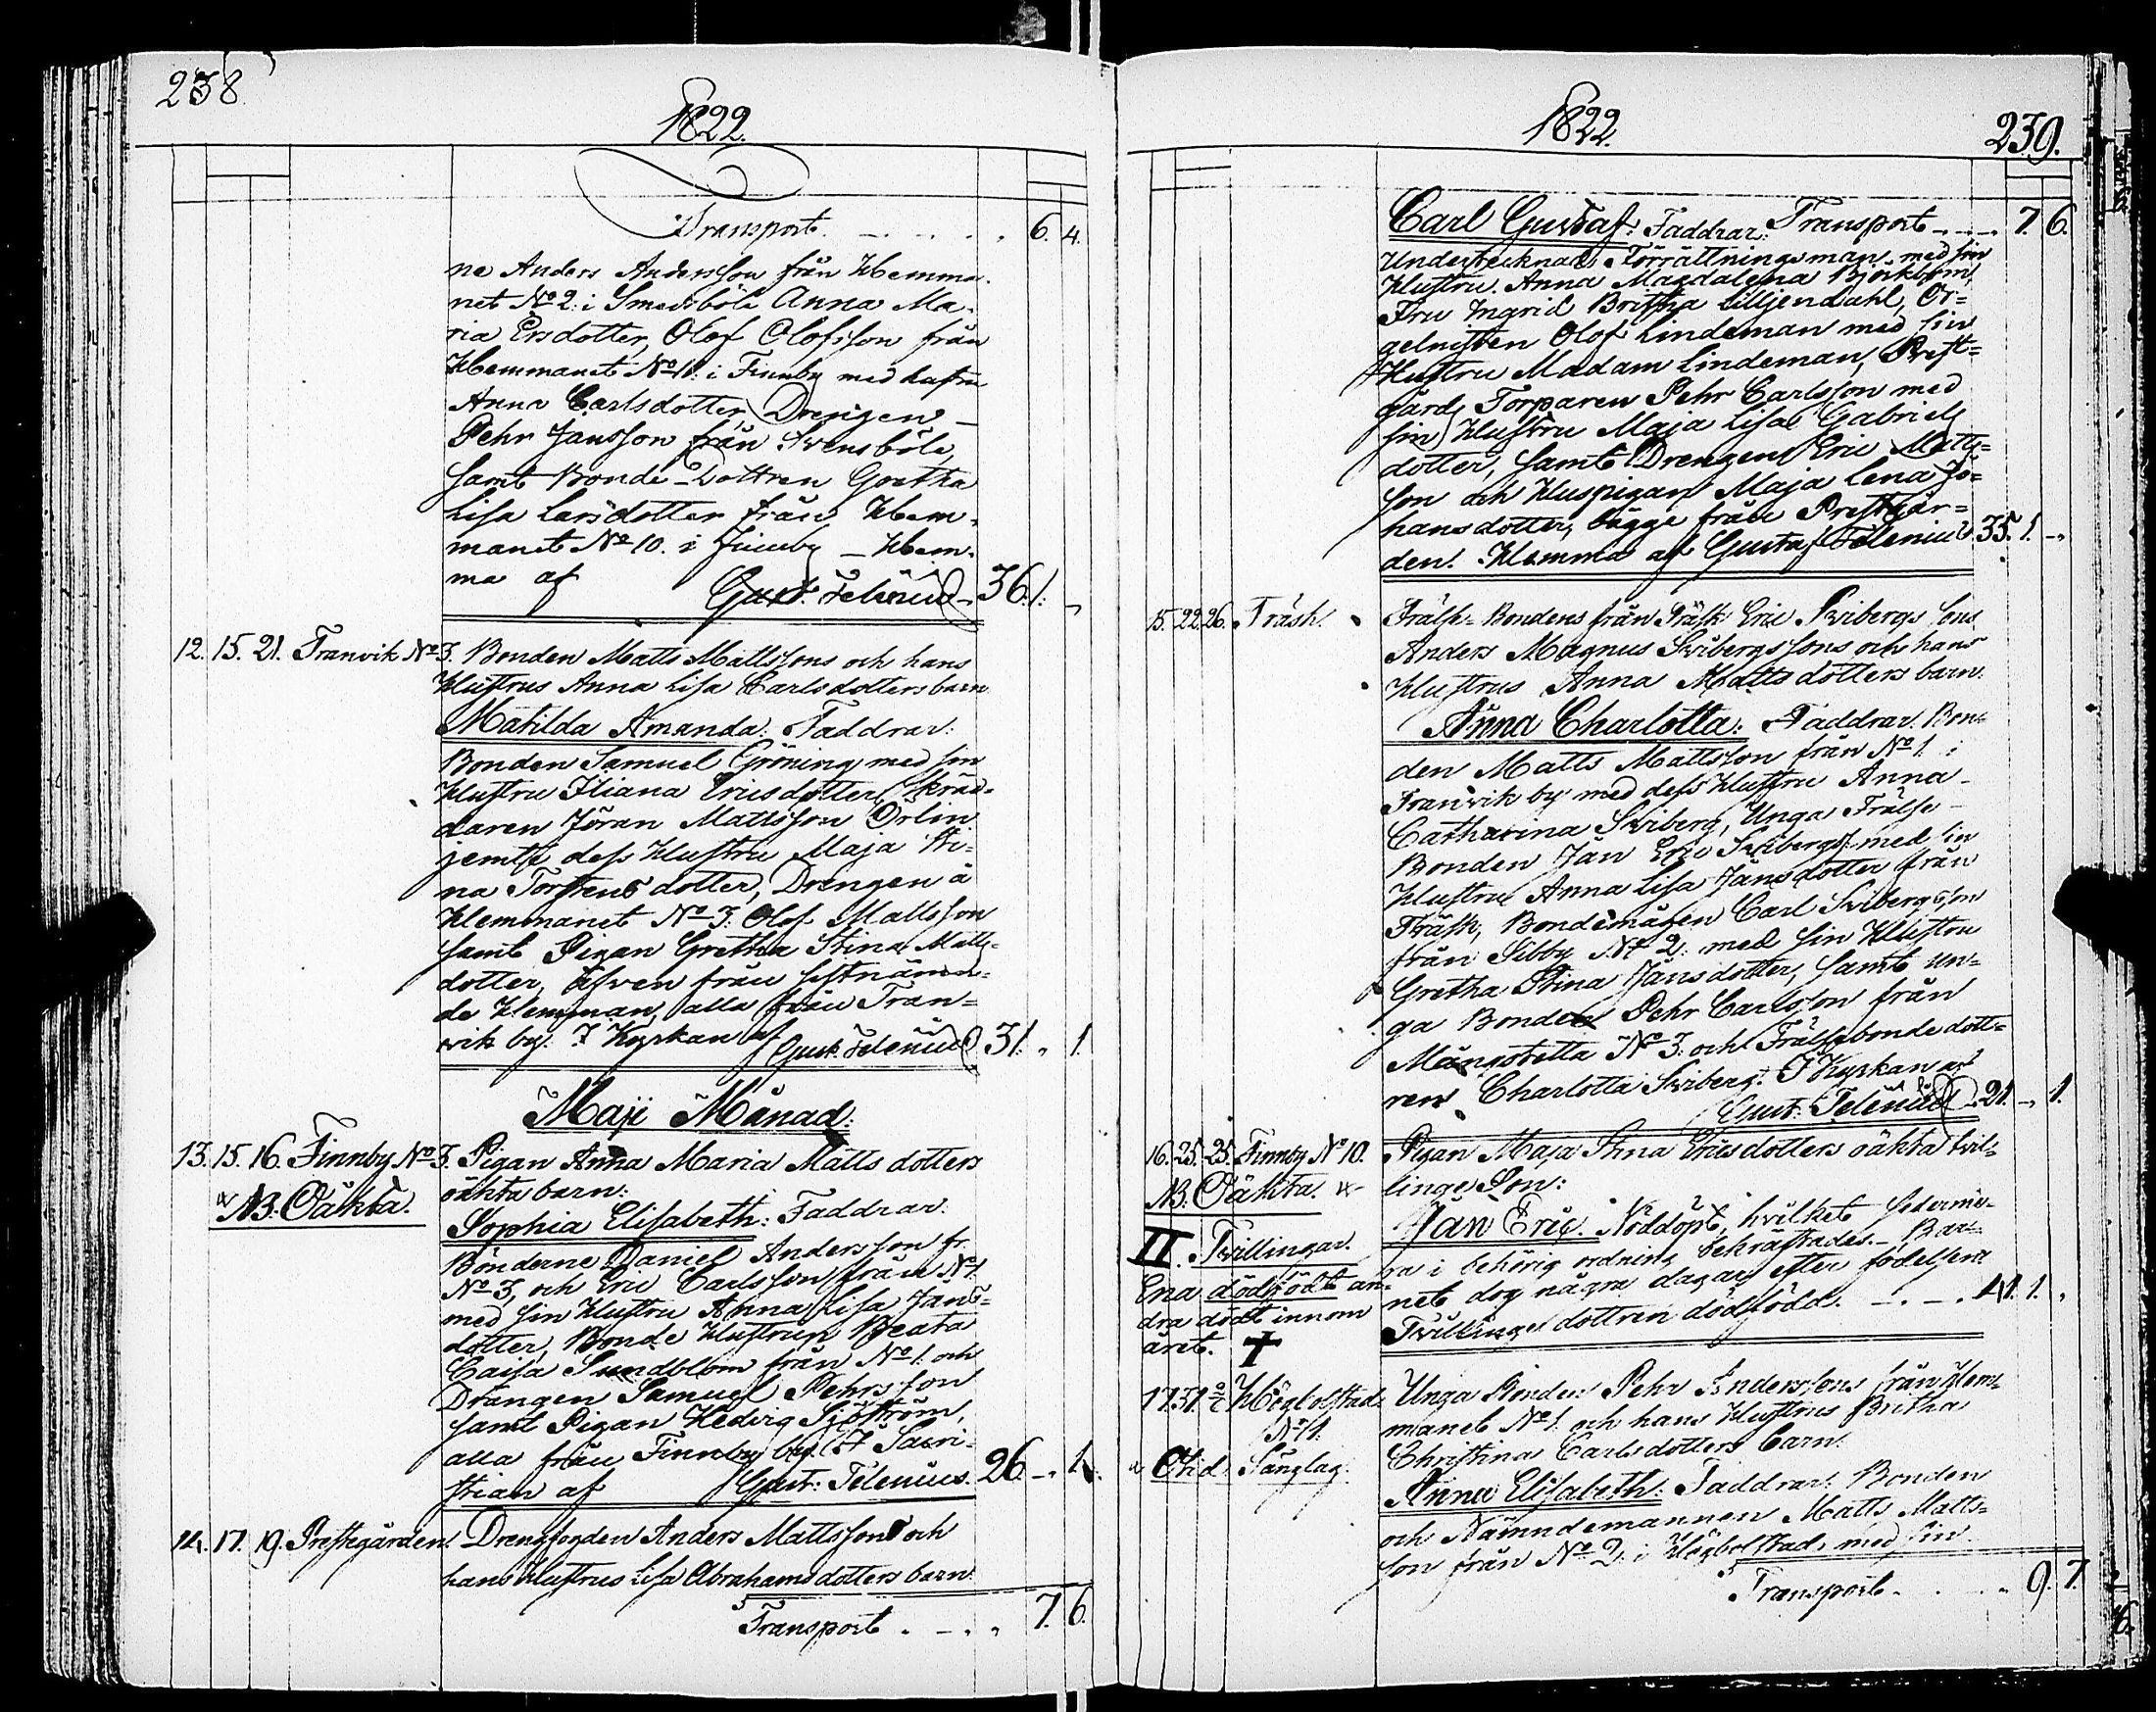 238.
1822.
Transport. - . . . . 6. 4.
ne Anders Andersson från Hemma-
net No 2. i Smedsböle Anna Ma-
ria Ersdotter, Olof Olofsson från
Hemmanet No 10. i Finnby med hustru
Anna Carlsdotter, Drengen
Pehr Jansson från Svensböle,
samt Bonde-Dottren Gretha
Lisa Larsdotter från Hem-
manet No 10. i Finnby - Hem-
ma af Gust. Felenius 36. 1. „
12. 15. 21. Tranvik No 3. Bonden Matts Mattssons och hans
Hustrus Anna Lisa Carlsdotters barn
Mathilda Amanda: Faddrar:
Bonden Samuel Gröning med sin
Hustru Iliana Ericsdotter, Skräd-
daren Jöran Mattsson Örlin
jemte dess Hustru Maja Sti-
na Torstensdotter, Drengen å
Hemmanet No 3. Olof Mattsson
samt Pigan Gretha Stina Matts-
dotter, äfven från sistnämn-
de Hemman, alla från Tran-
vik by. I Kyrkan af
Gust. Felenius 31. „ 1.
Maji Månad:
13. 15. 16. Finnby No 3. Pigan Anna Maria Matts dotters
NB. Oäkta. oäkta barn:
Sophia Elisabeth: Faddrar:
Bönderne Daniel Andersson fr.
No 3, och Eric Carlsson från No 1.
med sin Hustru Anna Lisa Jans-
dotter, Bonde Hustrun Beata
Caisa Sundblom från No 1. och
Drängen Samuel Pehrsson
samt Pigan Hedvig Sjöström,
alla från Finnby by. I Sacri-
stian af Gust. Felenius. 26. „ 1.
14. 17. 19. Prestegården. Drengfogden Anders Mattssons och
hans Hustrus Lisa Abrahamsdotters barn
Transport . - . . 7. 6.
1822.
239.
Carl Gustaf: Faddrar: Transport - - - 7. 6.
Undertecknad Förrättningsman med sin
Hustru Anna Magdalena Björkbom,
Fru Ingrid Britha Lilljendahl, Or-
gelnisten Olof Lindeman med sin
Hustru Madam Lindeman, Prest-
gårds Torparen Pehr Carlsson med
sin Hustru Maja Lisa Gabriels
dotter, samt Drengen Eric Matts-
son och Huspigan Maja Lena Jo-
hansdotter, bägge från Prestgår-
den. Hemma af Gustaf Felenius 35. 1. „
15. 22. 26. Träsk. Frälse-Bondens från Träsk Eric Svibergs Sons
Anders Magnus Svibergssons och hans
Hustrus Anna Mattsdotters barn.
Anna Charlotta: Faddrar: Bon-
den Matts Mattsson från No 1. i
Tranvik by med dess Hustru Anna
Catharina Sviberg, Unga Frälse-
Bonden Jan Eric Sviberg med sin
Hustru Anna Lisa Jansdotter från
Träsk, Bondemågen Carl Svibergsson
från Sibby No 2. med sin Hustru
Gretha Stina Jansdotter, samt un-
ga Bonden Pehr Carlsson från
Mångstekta No 3. och Frälsebondedott-
ren Charlotta Sviberg. I Kyrkan af
Gust: Felenius 21. „ 1.
16. 25. 25. Finnby No 10. Pigan Maja Stina Ericsdotters oäkta tvil-
NB. Oäkta. linge Son:
Jan Eric. Nöddöpt, hvilket sedermé-
II. Tvillingar. ra i behörig ordning bekräftades. - Bar-
Ena dödfödt an- net dog några dagar efter födelsen.
dra dödt innom Tvillinge dottren dödfödd. - . - . 41. 1. „
året. †
17. 31. 2/6. Högbolstad Unga Bonden Pehr Anderssons från Hem-
No 1. manet No 1. och hans Hustrus Britha
Otid. Sänglag. Christina Carlsdotters barn.
Anna Elisabeth: Faddrar: Bonden
och Nämndemannen Matts Matts-
son från No 2. i Högbolstad med sin
Transport. . . . . 9. 7.